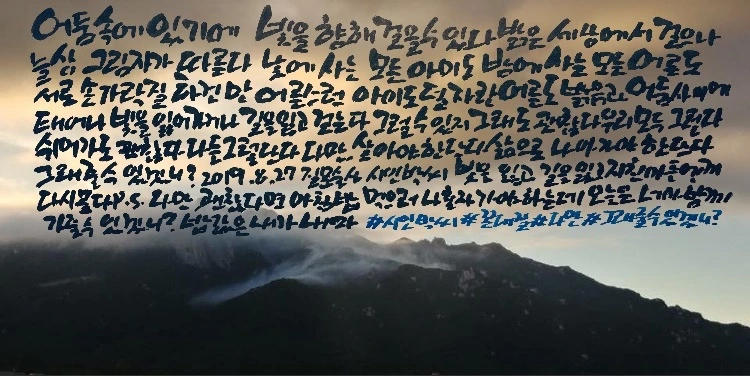 어둠속에 있기에 빛을 향해 걸을수 있다 밝은 세상에서 걸으나
늘상 그림자가 따른다 낮에 사는 모든 아이도 밤에 사는 모든 어른도
서로 손가락질 하건만 어른스런 아이도 덜자란 어른도 밝음과 어둠사이에
태어나 빛을 잃어가거나 길을 잃고 걷는다 그럴수 있지 그래도 괜찮다 우리 모두 그런다
쉬어가도 괜찮다 다들 그렇단다 다만 살아야 한다 삶으로 나아가야 한단다
그래줄수 있겠니? 2019.8.27 질문술사 시인박씨 빛을 잃고 길을 잃은
다시묻다 P.S. 다만 괜찮다면 아침밥 먹으러 나올 오늘은 너와 함께
가줄수 있겠니? 밥값은 내가 내마 #시인박씨 #다만 #그래줄수있겠니?